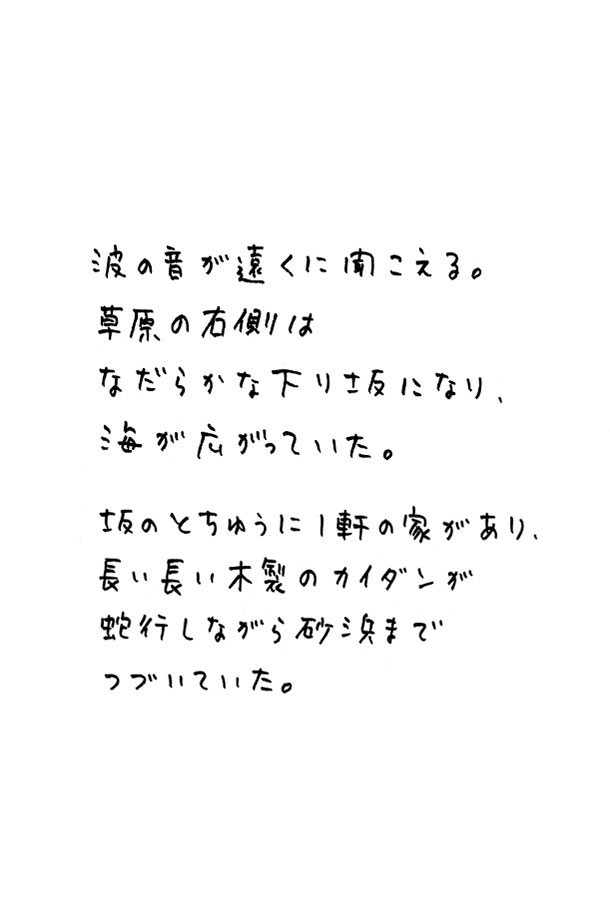 波の音が遠くに聞こえる。
草原の右側は
なだらかな下り坂になり、
海が広がっていた。
坂のとちゅうに1軒の家があり、
長い長い木製のカイダンが
蛇行しながら砂浜まで
つづいていた。